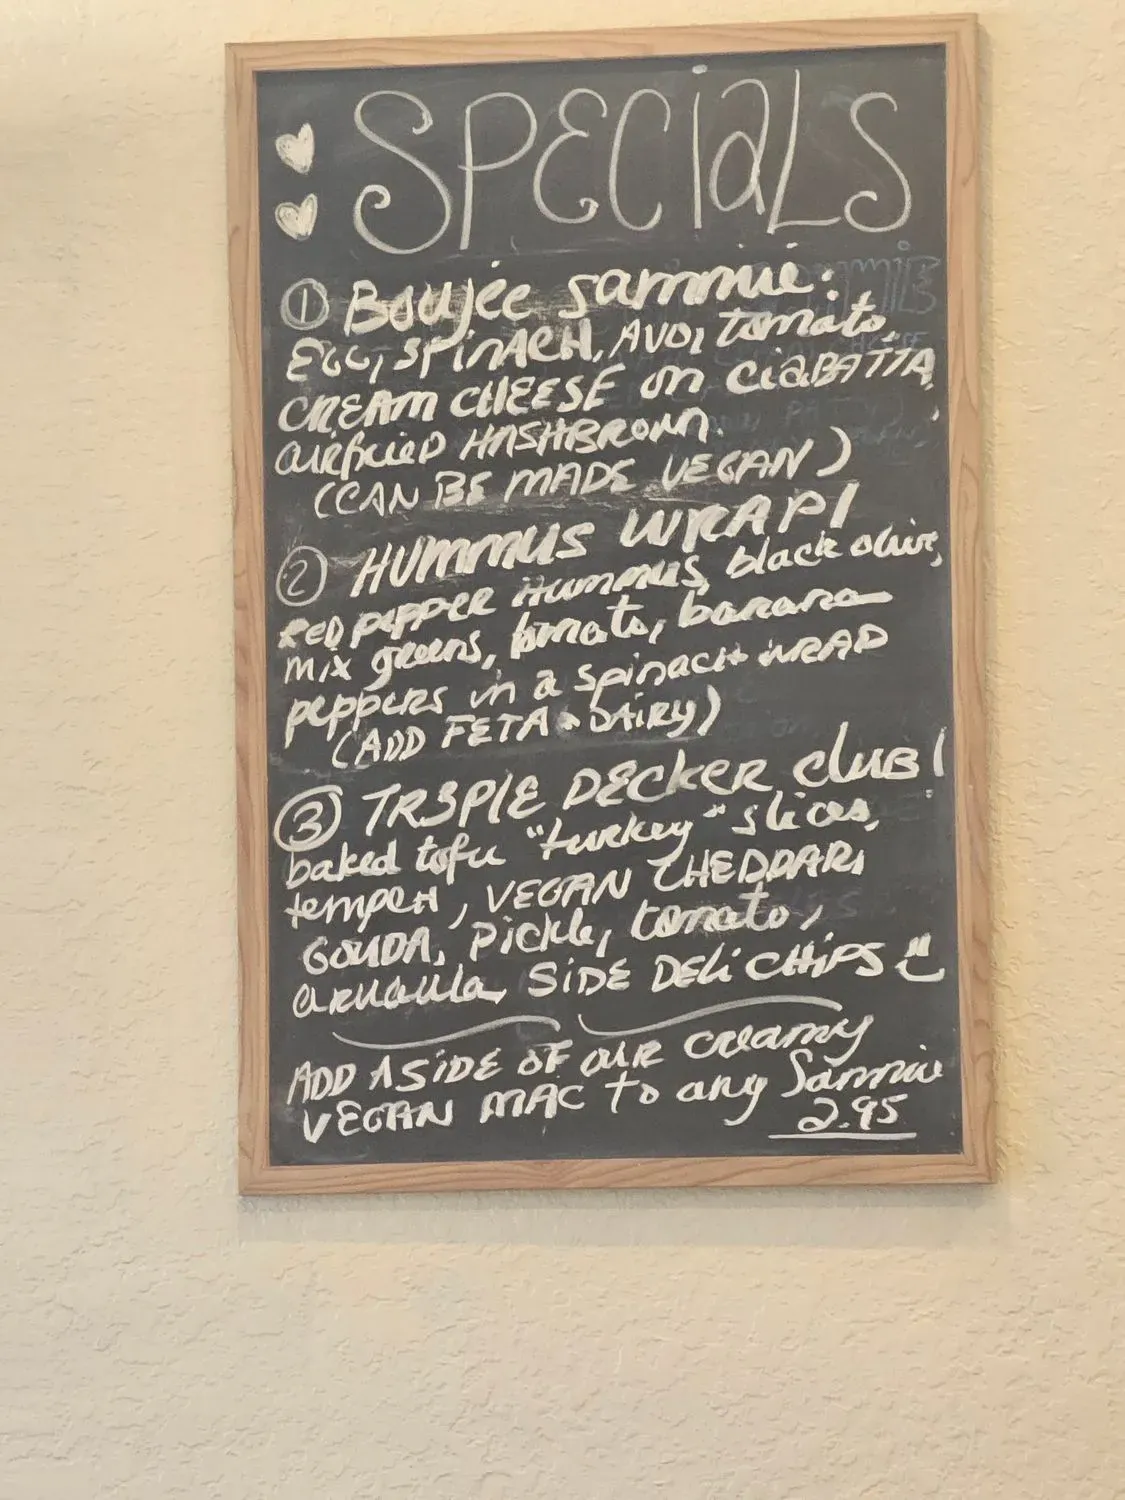 SPECiaLS
① Boujee sammie:
EGG, SPiNACH, AVO, tomato,
CREAM CHEESE on CiaBATTA,
airfried HASHBROWN.
(CAN BE MADE VEGAN)
② HUMMUS WRAP!
RED pepper Hummus, black olive,
mix greens, tomato, banana
peppers in a spinach WRAP
(ADD FETA • DAiRY)
③ TRIPlE DECkER club!
baked tofu "turkey" slices,
tempeH, VEGAN CHEDDAR,
GOUDA, pickle, tomato,
arugula, SiDE DELi CHiPS
ADD A SiDE OF OUR creamy
VEGAN MAC to any Sammie
2.95